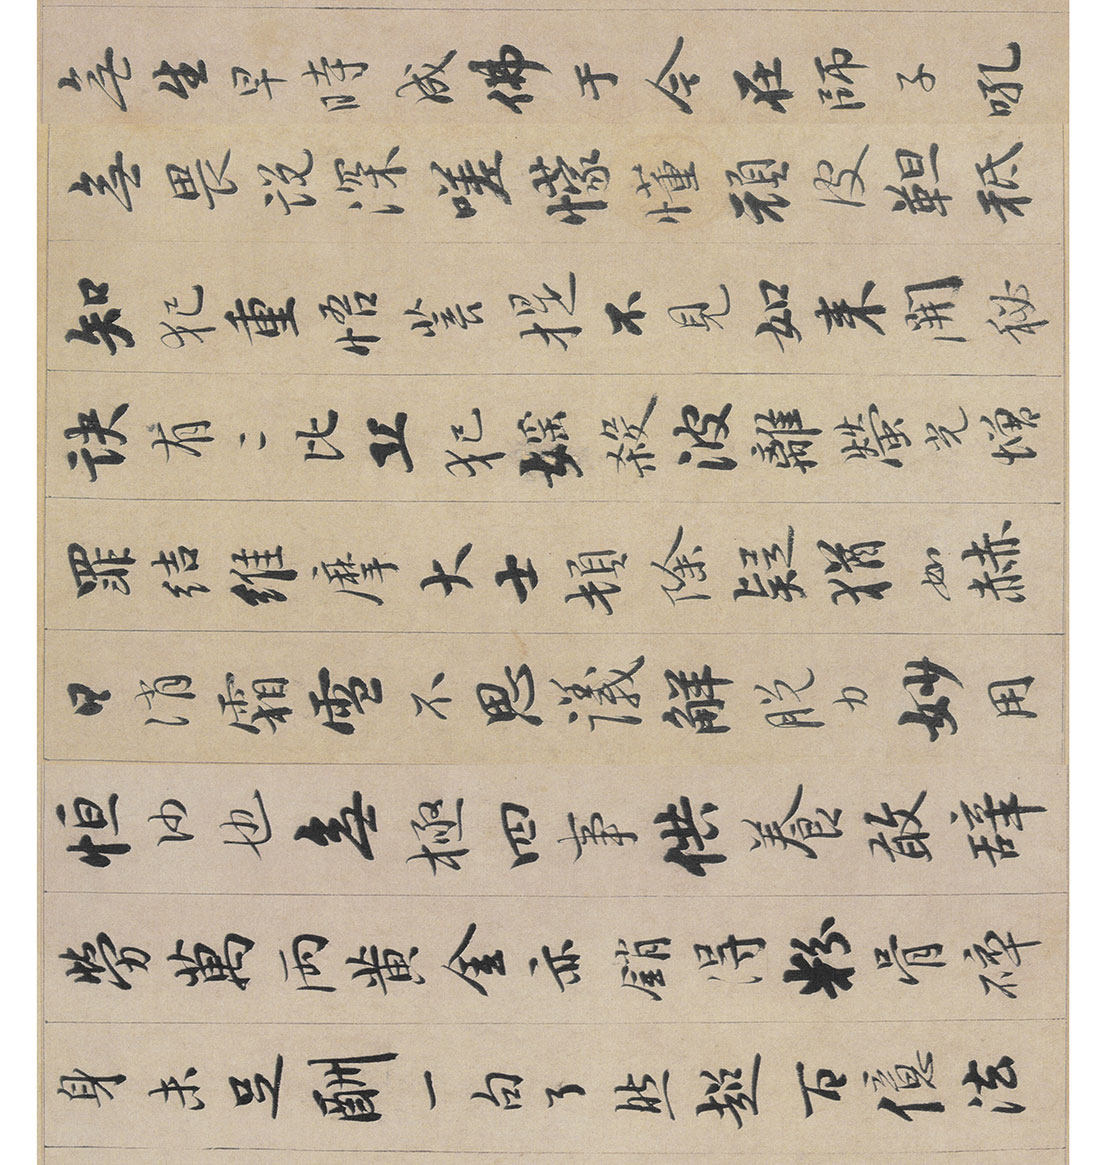 无生早時成佛于今在師子吼
无畏说深嗟懞懂頑皮靼秖
知犯重悟菩提不見如来開秘
訣有二比丘犯婬殺波離螢光增
罪結維摩大士頓除疑猶如赫
日消霜雪不思議解脫力妙用
恒沙也无極四事供養敢辭
勞萬兩黄金亦銷得粉骨碎
身未足酬一句了然超百億法